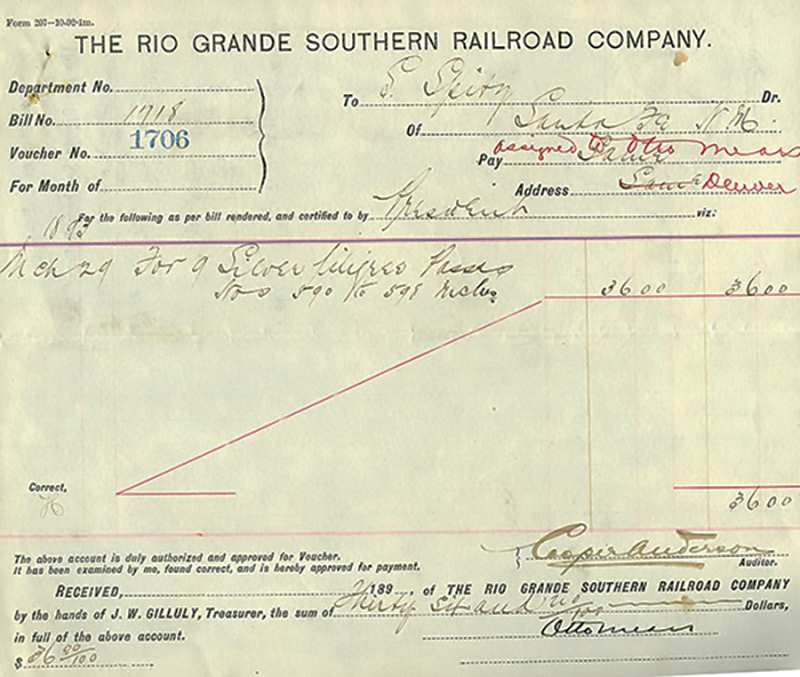 Form 207—10-92-1m.
THE RIO GRANDE SOUTHERN RAILROAD COMPANY.
Department No.
Bill No. 1718
Voucher No. 1706
For Month of
To S. Spitz Dr.
Of Santa Fe N.M.
assigned to Otto Mears
Pay Same
Address Same Denver
For the following as per bill rendered, and certified to by President viz:
1893
Mch 29 For 9 Silver filigree Passes
Nos 590 to 598 Inclus 36 00 36 00
Correct,
36 00
The above account is duly authorized and approved for Voucher.
It has been examined by me, found correct, and is hereby approved for payment.
Casper Anderson
Auditor.
RECEIVED, 189 . of THE RIO GRANDE SOUTHERN RAILROAD COMPANY
by the hands of J. W. GILLULY, Treasurer, the sum of Thirty Six and no/100 Dollars,
in full of the above account.
Otto Mears
$ 36 00/100